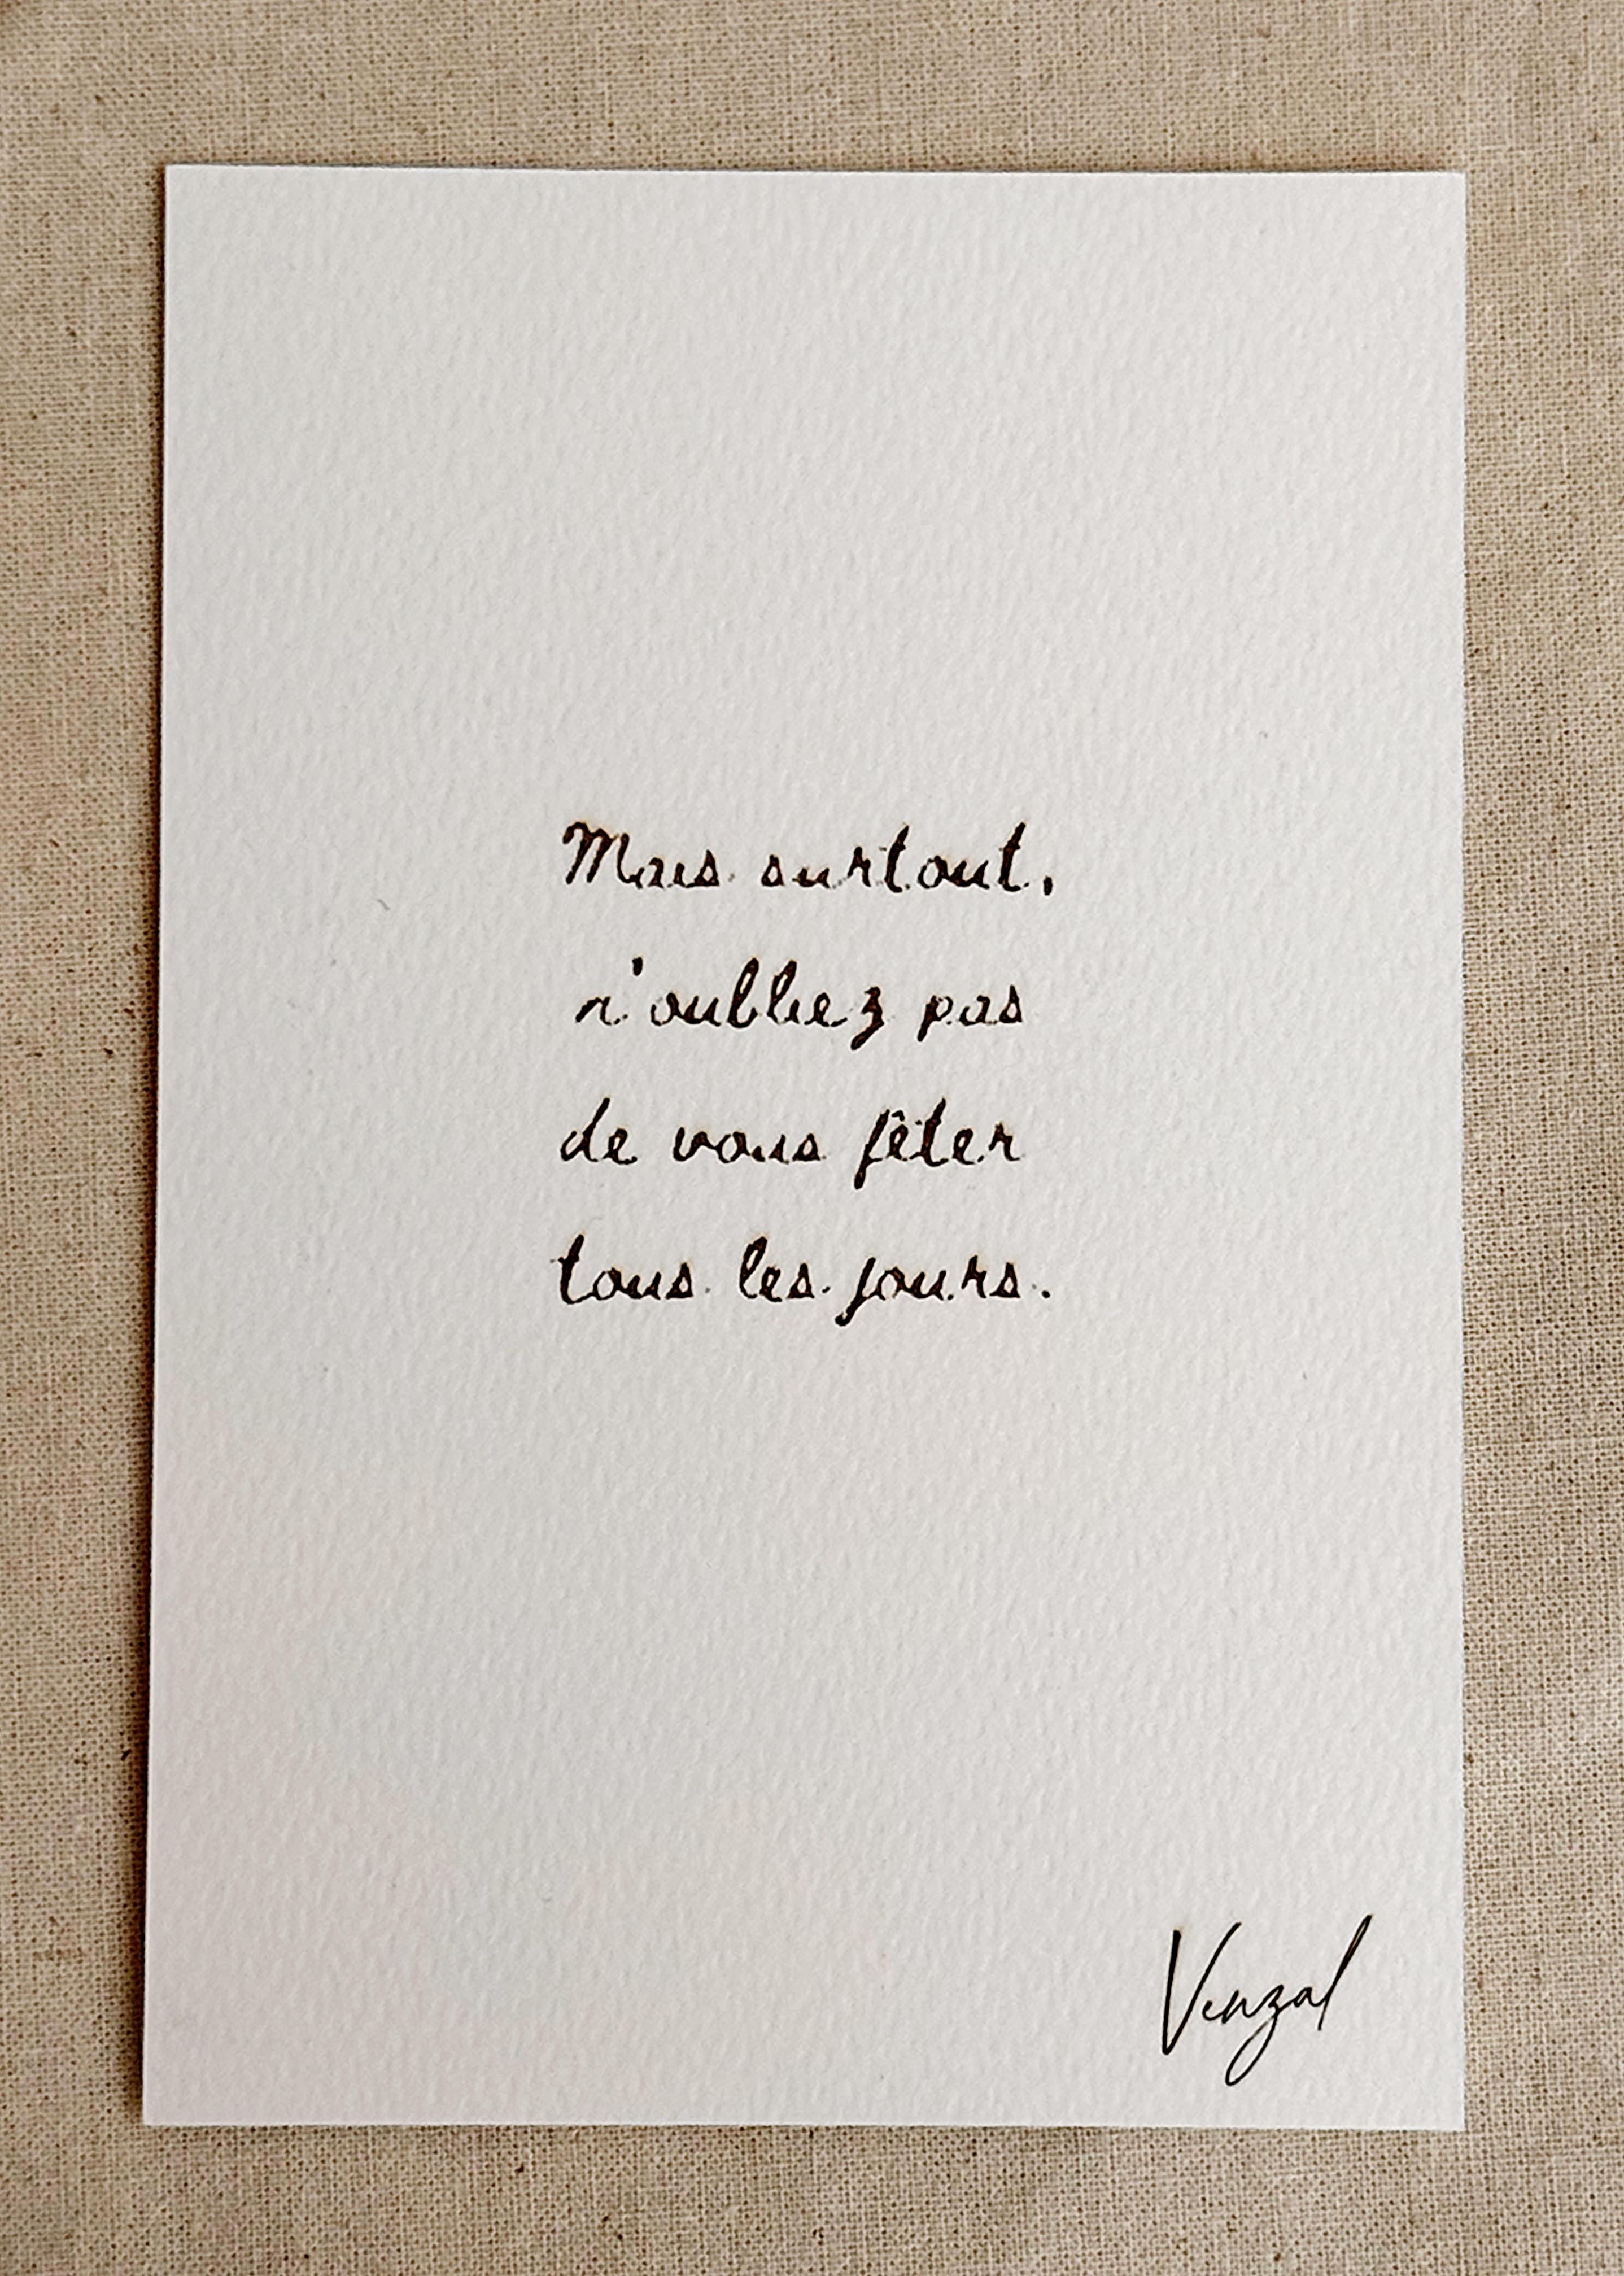 Mais surtout,
n'oubliez pas
de vous fêter
tous les jours.
Venzal